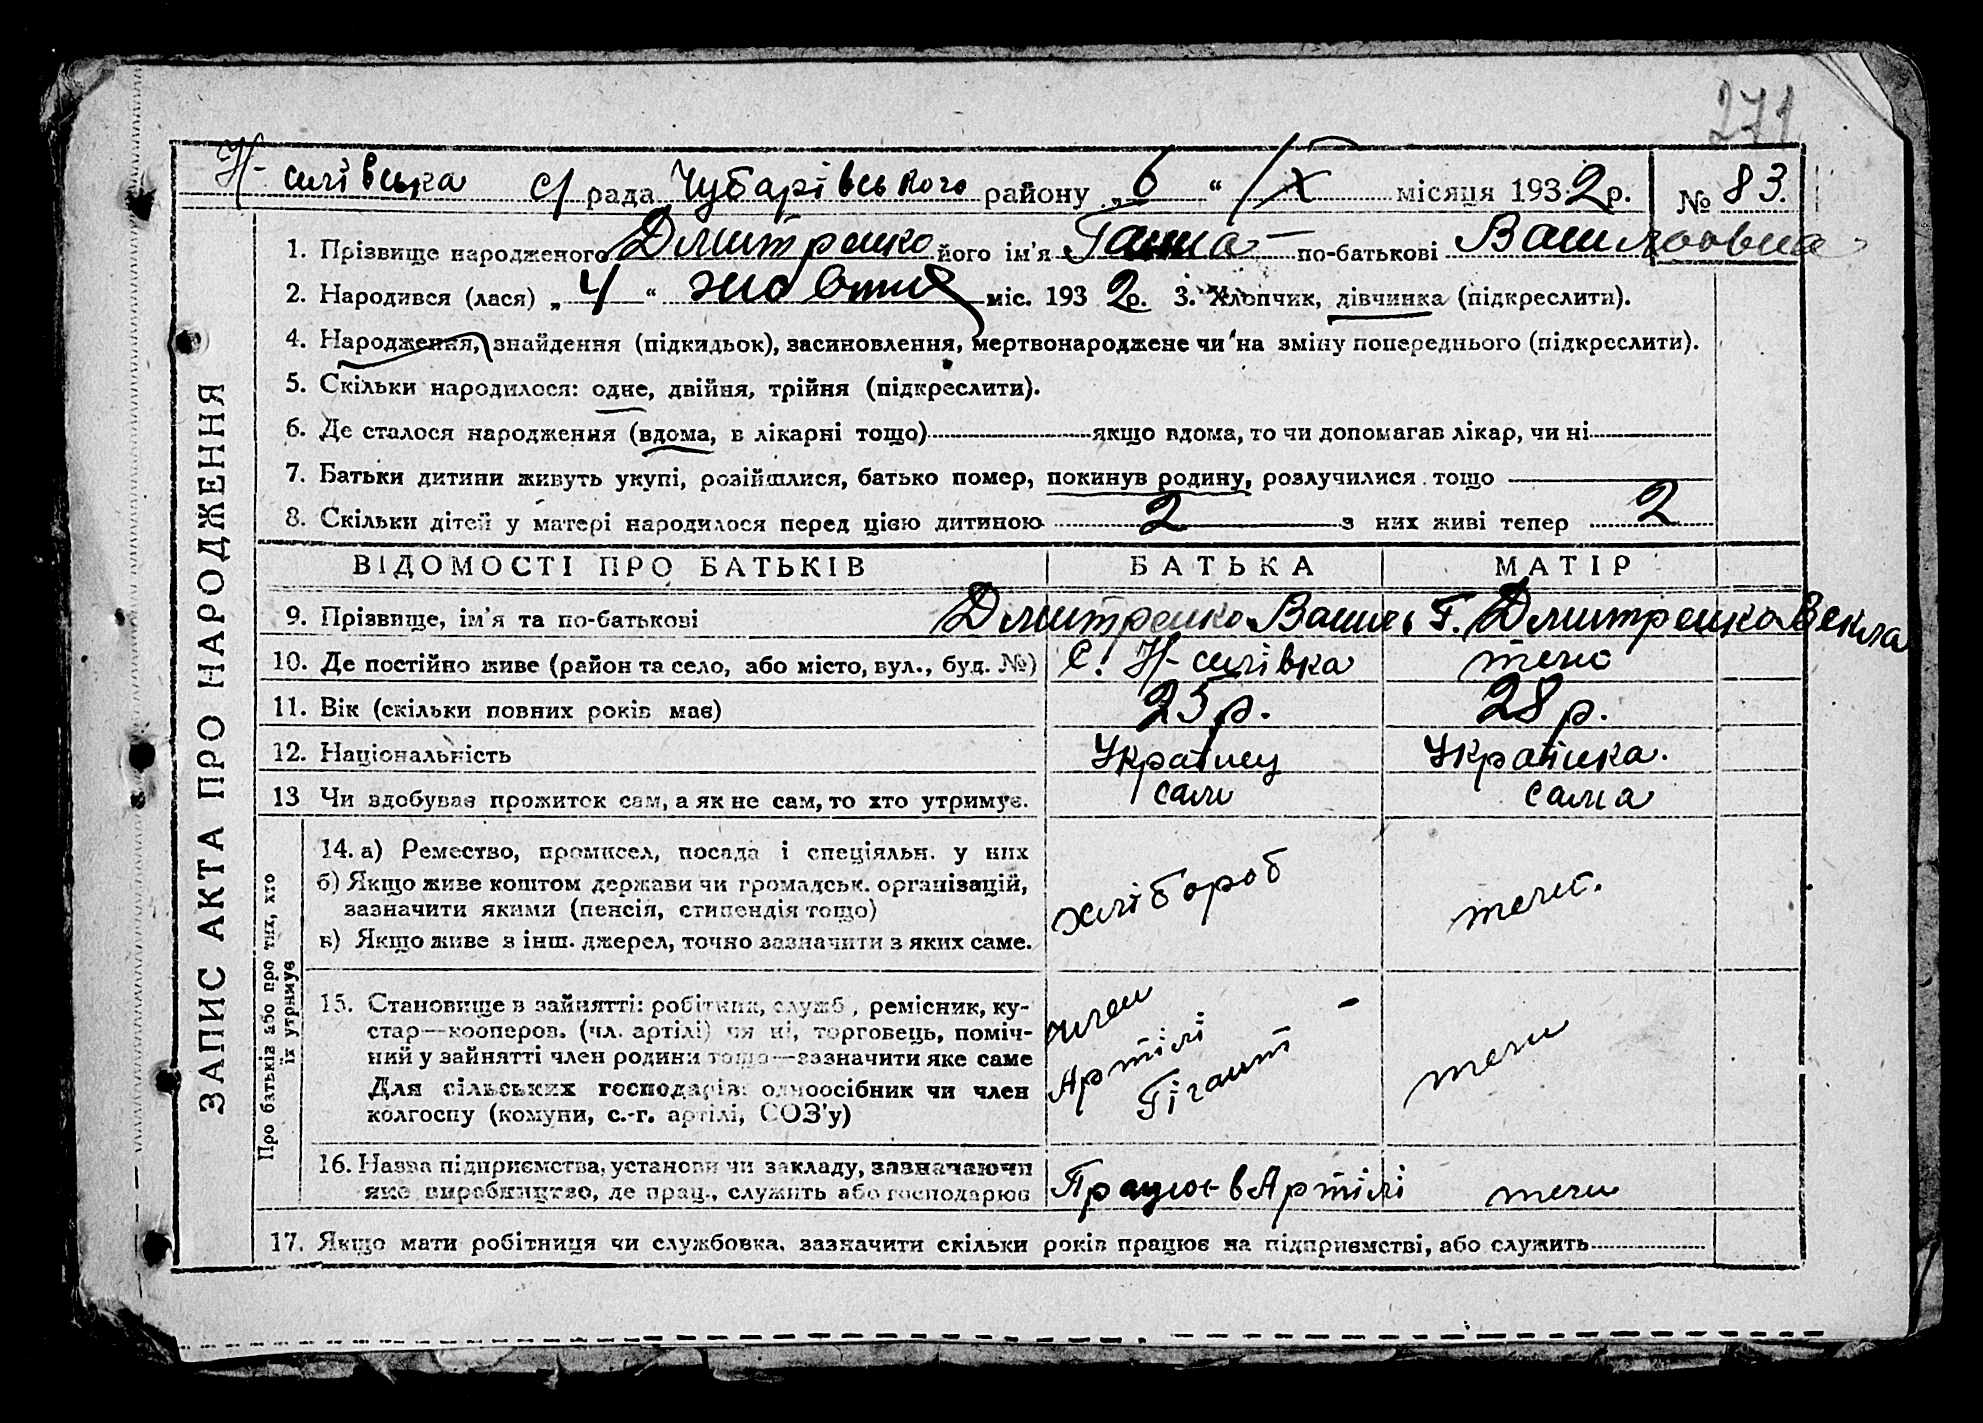 271
Н-силівська с/ рада Чубарівського району „ 6 “ /X місяця 1932 р. № 83.
1. Прізвище народженого Дмитренко його ім'я Ганна — по-батькові Василовна
2. Народився (лася) „ 4 “ жовтня міс. 193 2р. 3. Хлопчик, дівчинка (підкреслити).
4. Народження, знайдення (підкидьок), засиновлення, мертвонароджене чи на зміну попереднього (підкреслити).
5. Скільки народилося: одне, двійня, трійня (підкреслити).
6. Де сталося народження (вдома, в лікарні тощо) якщо вдома, то чи допомагав лікар, чи ні
7. Батьки дитини живуть укупі, розійшлися, батько помер, покинув родину, розлучилися тощо
8. Скільки дітей у матері народилося перед цією дитиною 2 з них живі тепер 2
ВІДОМОСТІ ПРО БАТЬКІВ БАТЬКА МАТІР
9. Прізвище, ім'я та по-батькові Дмитренко Васил Г. Дмитренко Векла
10. Де постійно живе (район та село, або місто, вул., буд. №) С. Н-силівка теж
11. Вік (скільки повних років має) 25 р. 28 р.
12. Національність Українец Українка.
13 Чи здобуває прожиток сам, а як не сам, то хто утримує. сам сама
14. а) Ремество, промисел, посада і спеціяльн. у них
б) Якщо живе коштом держави чи громадськ. організацій,
зазначити якими (пенсія, стипендія тощо)
в) Якщо живе з інш. джерел, точно зазначити з яких саме.
хлібороб теж.
15. Становище в зайнятті: робітник, служб., ремісник, ку-
стар—кооперов. (чл. артілі) чи ні, торговець, поміч-
ний у зайнятті член родини тощо—зазначити яке саме
Для сільських господарів: одноосібник чи член
колгоспу (комуни, с.-г. артілі, СОЗ'у)
член
Артілі
Гігант
теж
16. Назва підприємства, установи чи закладу, зазначаючи
яке виробництво, де прац., служить або господарює
Працює в Артілі теж
17. Якщо мати робітниця чи службовка, зазначити скільки років працює на підприємстві, або служить
ЗАПИС АКТА ПРО НАРОДЖЕННЯ
Про батьків або про тих, хто
їх утримує